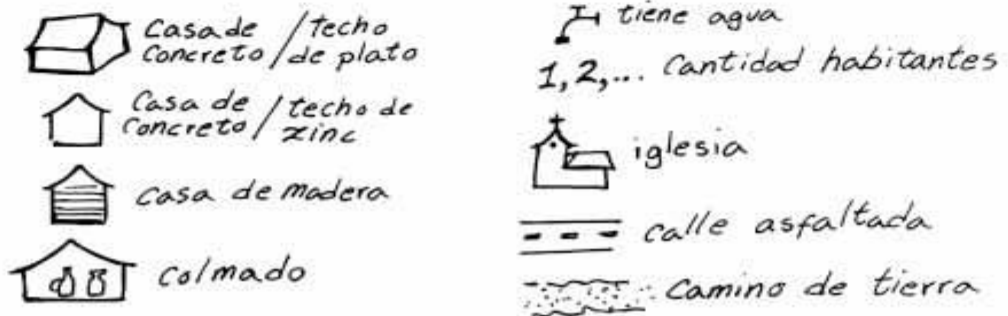 Casa de / techo
Concreto / de plato
Casa de / techo de
Concreto / zinc
Casa de madera
Colmado
tiene agua
1, 2, ... Cantidad habitantes
iglesia
calle asfaltada
Camino de tierra